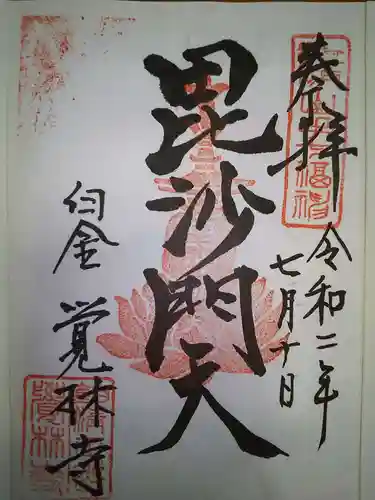 奉拝
令和二年
七月十日
毘沙門天
白金
覚林寺